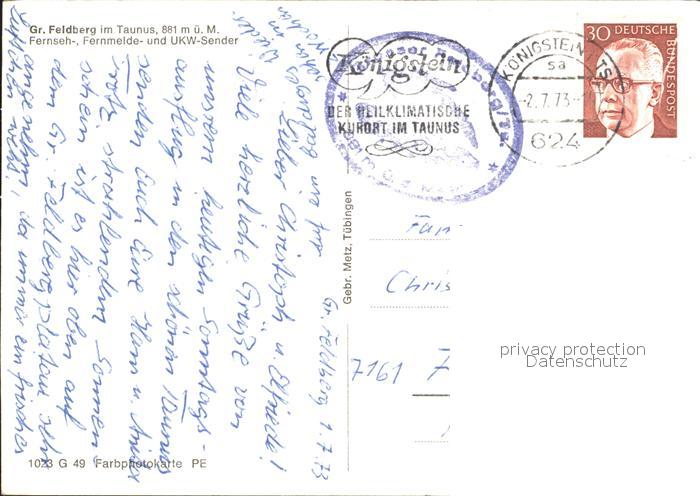 Gr. Feldberg im Taunus, 881 m ü. M.
Fernseh-, Fernmelde- und UKW-Sender
Gr. Feldberg 1.7.73
Lieber Christoph u. Elfriede!
Viele herzliche Grüße von
unserem heutigen Sonntags-
ausflug in den schönen Taunus
senden Euch Eure Hann u.
Trotz strahlendem Sonnen-
schein ist es hier oben auf
dem Gr. Feldbergplateau sehr
angenehm, da immer ein frischer
Lüftchen weht,
Gebr. Metz, Tübingen
1023 G 49 Farbphotokarte PE
Königstein
DER HEILKLIMATISCHE
KURORT IM TAUNUS
KÖNIGSTEIN, TS
sa
-2.7.73-
624
30 DEUTSCHE
BUNDESPOST
Fam
Chris
7161
privacy protection
Datenschutz